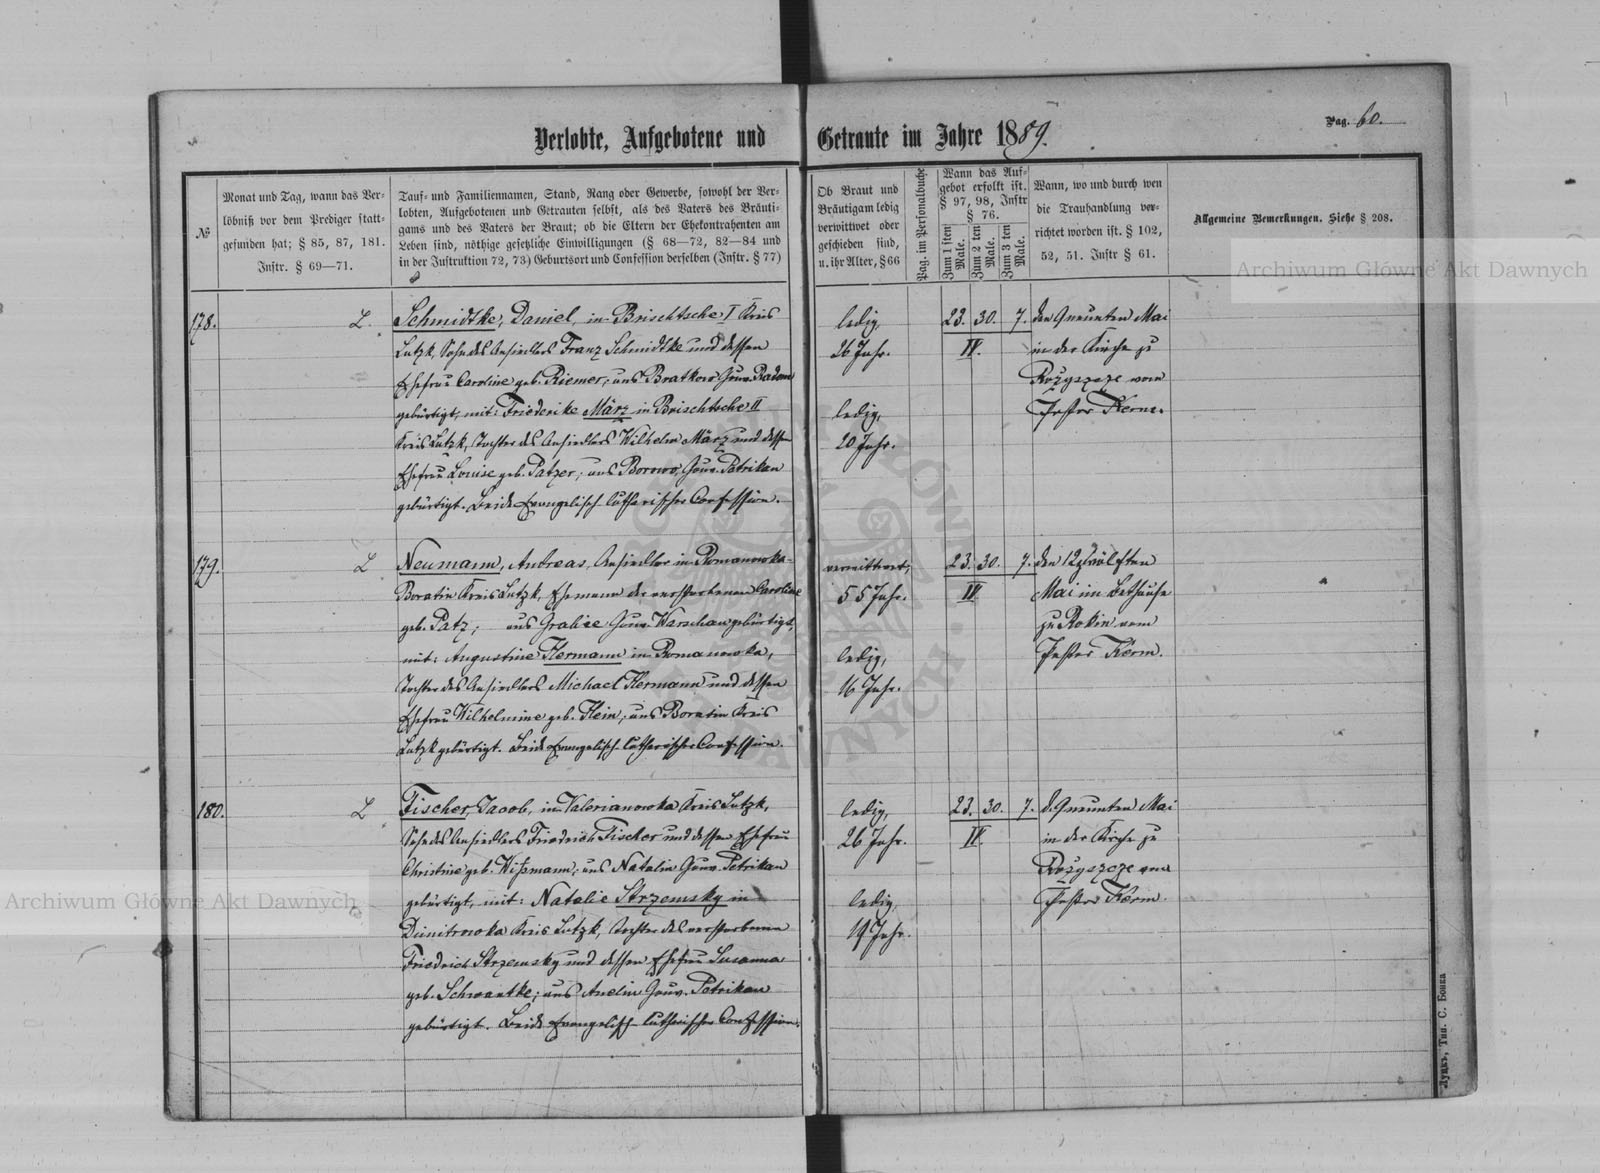 Verlobte, Aufgebotene und Getraute im Jahre 1889.
Pag. 60.
№
Monat und Tag, wann das Ver-
löbniß vor dem Prediger statt-
gefunden hat; § 85, 87, 181.
Instr. § 69—71.
Tauf- und Familiennamen, Stand, Rang oder Gewerbe, sowohl der Ver-
lobten, Aufgebotenen und Getrauten selbst, als des Vaters des Bräuti-
gams und des Vaters der Braut; ob die Eltern der Ehekontrahenten am
Leben sind, nöthige gesetzliche Einwilligungen (§ 68—72, 82—84 und
in der Instruktion 72, 73) Geburtsort und Confession derselben (Instr. § 77)
Ob Braut und
Bräutigam ledig
verwittwet oder
geschieden sind,
u. ihr Alter, § 66
Pag. im Personalbuche
Wann das Auf-
gebot erfolkt ist.
§ 97, 98, Instr
§ 76.
Zum 1 sten
Male.
Zum 2 ten
Male.
Zum 3 ten
Male.
Wann, wo und durch wen
die Trauhandlung ver-
richtet worden ist. § 102,
52, 51. Instr § 61.
Allgemeine Bemerkungen. Siehe § 208.
178.
L.
Schmidtke, Daniel, in Brischtsche I Kreis
Lutzk, Sohn des Ansiedlers Franz Schmidtke und dessen
Ehefrau Caroline geb. Riemer, aus Bratkow Gouv. Radom
gebürtigt, mit: Friederike März in Brischtsche II
Kreis Lutzk, Tochter des Ansiedlers Wilhelm März und dessen
Ehefrau Louise geb. Patzer, aus Borowo, Gouv. Petrikau
gebürtigt. Beide Evangelisch-lutherischer Confession.
ledig,
26 Jahr.
ledig,
20 Jahr.
23. 30. 7.
IV.
den 9 neunten Mai
in der Kirche zu
Rożyszcze vom
Pastor Kerm.
179.
L
Neumann, Andreas, Ansiedler in Romanowka-
Boratin Kreis Lutzk, Ehemann der verstorbenen Caroline
geb. Patz, aus Gralice Gouv. Warschau gebürtigt,
mit: Augustine Hermann in Romanowka,
Tochter des Ansiedlers Michael Hermann und dessen
Ehefrau Wilhelmine geb. Klein, aus Boratin Kreis
Lutzk gebürtigt. Beide Evangelisch-lutherischer Confession.
verwittwet,
55 Jahr.
ledig,
16 Jahr.
23. 30. 7.
IV
den 12 zwölften
Mai im Bethause
zu Rokin vom
Pastor Kerm.
180.
L
Fischer, Jacob, in Valerianowka Kreis Lutzk,
Sohn des Ansiedlers Friedrich Fischer und dessen Ehefrau
Christine geb. Wißmann, aus Natalin Gouv. Petrikau
gebürtigt, mit: Natalie Strzemsky in
Dimitrowka Kreis Lutzk, Tochter des verstorbenen
Friedrich Strzemsky und dessen Ehefrau Susanna
geb. Schwantke, aus Anelin Gouv. Petrikau
gebürtigt. Beide Evangelisch-lutherischer Confession.
ledig,
26 Jahr.
ledig,
19 Jahr.
23. 30. 7.
IV.
d. 9 neunten Mai
in der Kirche zu
Rożyszcze vom
Pastor Kerm.
Луцкъ, Тип. С. Бонка
Archiwum Główne Akt Dawnych
Archiwum Główne Akt Dawnych